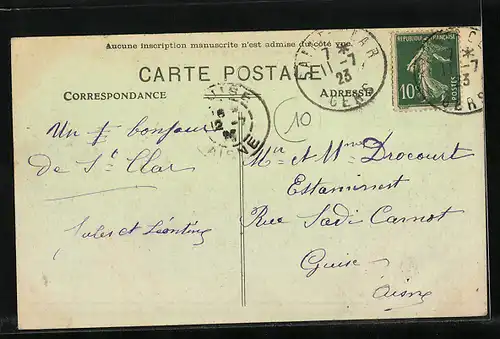 Aucune inscription manuscrite n'est admise du côté vue.
CARTE POSTALE
CORRESPONDANCE
ADRESSE
SAINT-CLAR
7 *
11 -7
23
GERS
REPUBLIQUE FRANÇAISE
10c
POSTES
GUISE
AISNE
10
Un bonjour
de St Clar
Jules et Léontine
Mr et Mme Drocourt
Estaminet
Rue Sadi Carnot
Guise
Aisne